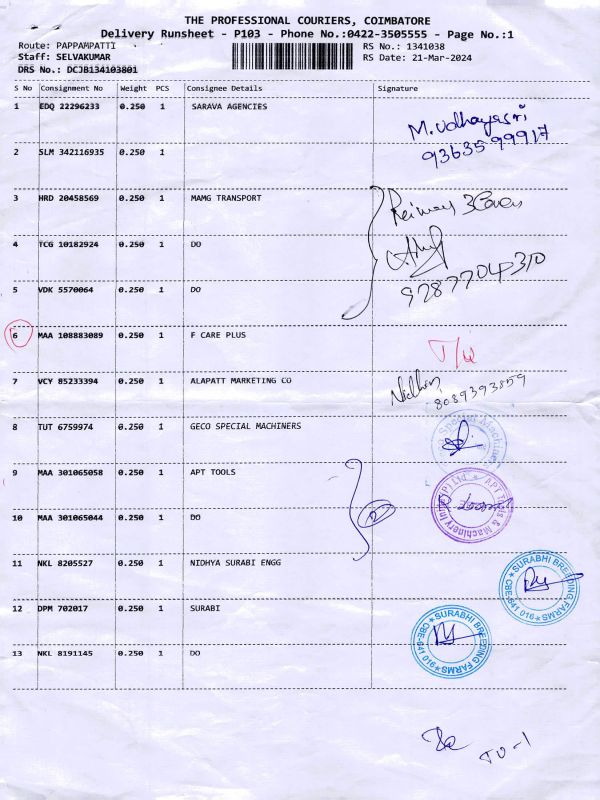 THE PROFESSIONAL COURIERS, COIMBATORE
Delivery Runsheet - P103 - Phone No.:0422-3505555 - Page No.:1
Route: PAPPAMPATTI RS No.: 1341038
Staff: SELVAKUMAR RS Date: 21-Mar-2024
DRS No.: DCJB134103801
S No Consignment No Weight PCS Consignee Details Signature
1 EDQ 22296233 0.250 1 SARAVA AGENCIES
M.Udhayasri
9363599917
2 SLM 342116935 0.250 1
3 HRD 20458569 0.250 1 MAMG TRANSPORT
3 Cover
4 TCG 10182924 0.250 1 DO
5 VDK 5570064 0.250 1 DO
9787704310
6 MAA 108883089 0.250 1 F CARE PLUS
7 VCY 85233394 0.250 1 ALAPATT MARKETING CO
8089393859
8 TUT 6759974 0.250 1 GECO SPECIAL MACHINERS
Special Machiners
9 MAA 301065058 0.250 1 APT TOOLS
APT Tools & Machinery India (P) Ltd
10 MAA 301065044 0.250 1 DO
2
11 NKL 8205527 0.250 1 NIDHYA SURABI ENGG
SURABHI BREEDING FARMS
CBE-641 016
12 DPM 702017 0.250 1 SURABI
SURABHI BREEDING FARMS
CBE-641 016
13 NKL 8191145 0.250 1 DO